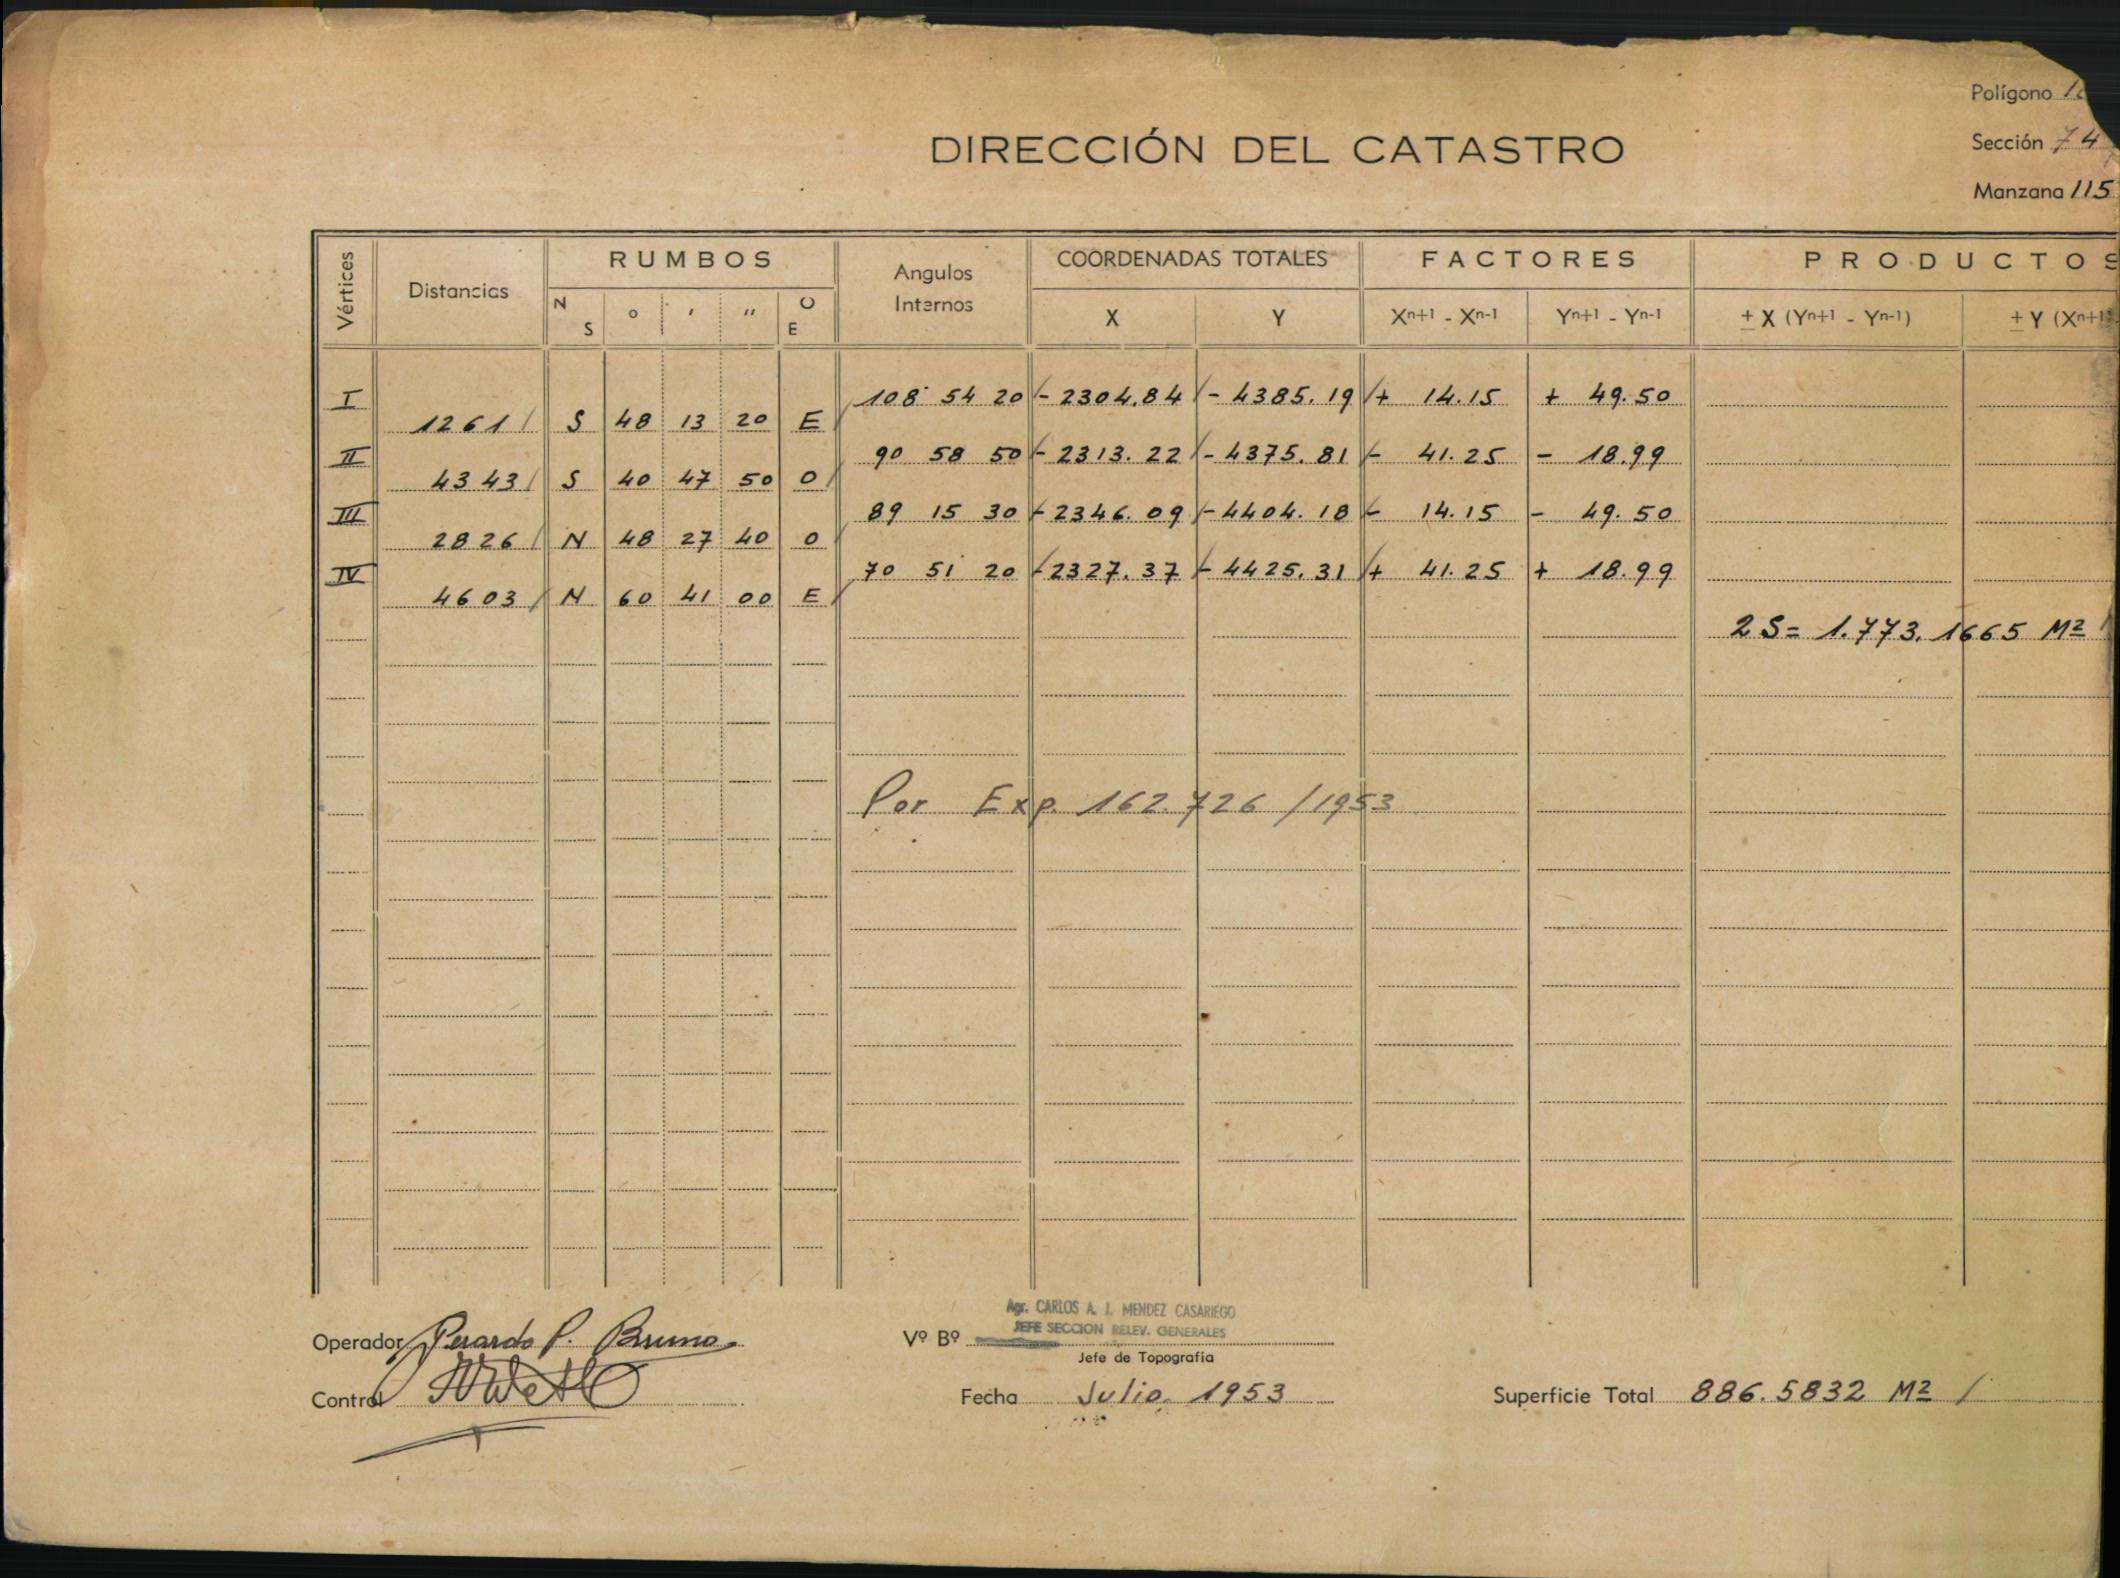 Polígono
Sección 74
Manzana 115
DIRECCIÓN DEL CATASTRO
Vértices Distancias RUMBOS Angulos Internos COORDENADAS TOTALES FACTORES PRODUCTOS
N S ° ' '' O E X Y Xn+1 - Xn-1 Yn+1 - Yn-1 ± X (Yn+1 - Yn-1) ± Y (Xn+1
I 108 54 20 - 2304.84 - 4385.19 + 14.15 + 49.50
1261 S 48 13 20 E
II 90 58 50 - 2313.22 - 4375.81 - 41.25 - 18.99
4343 S 40 47 50 O
III 89 15 30 - 2346.09 - 4404.18 - 14.15 - 49.50
2826 N 48 27 40 O
IV 70 51 20 - 2327.37 - 4425.31 + 41.25 + 18.99
4603 N 60 41 00 E
2 S = 1.773.1665 M2
Por Exp. 162.726 / 1953
Agr. CARLOS A. J. MENDEZ CASARIEGO
JEFE SECCION RELEV. GENERALES
Operador Gerardo P. Bruno Vº Bº
Jefe de Topografía
Control Fecha Julio 1953 Superficie Total 886.5832 M2